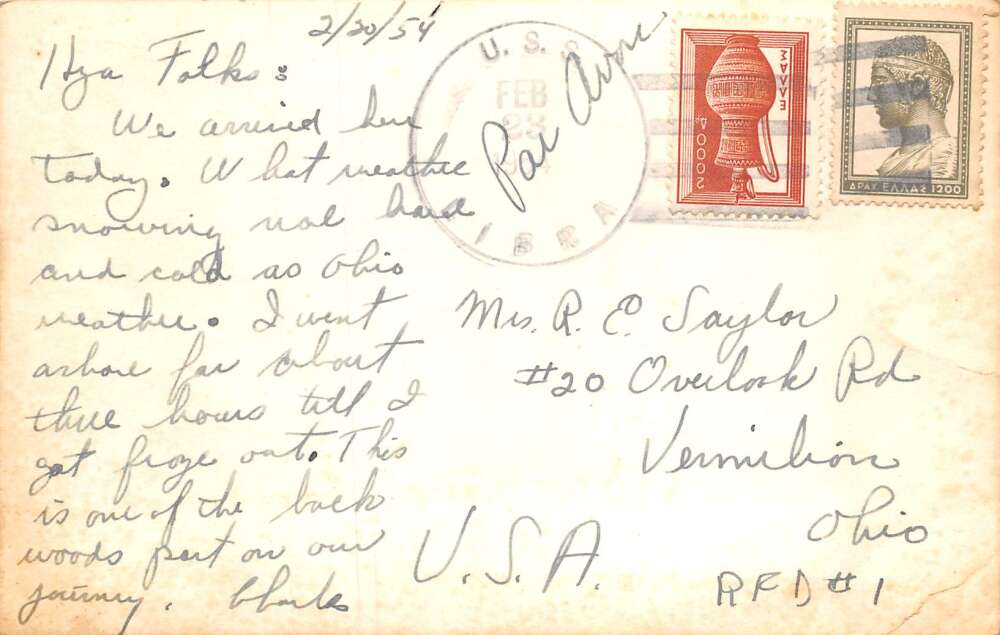 2/20/54
Hya Folks:
We arrived here
today. What weather
snowing real hard
and cold as Ohio
weather. I went
ashore for about
three hours till I
got froze out. This
is one of the back
woods port on our
journey. Charles
U. S. S.
FEB
23
IBRA
Par Avion
ΕΛΛΑΣ
2000 Δρ
ΔΡΑΧ. ΕΛΛΑΣ 1200
Mrs. R. E. Saylor
#20 Overlook Rd
Vermilion
Ohio
U.S.A.
RFD #1